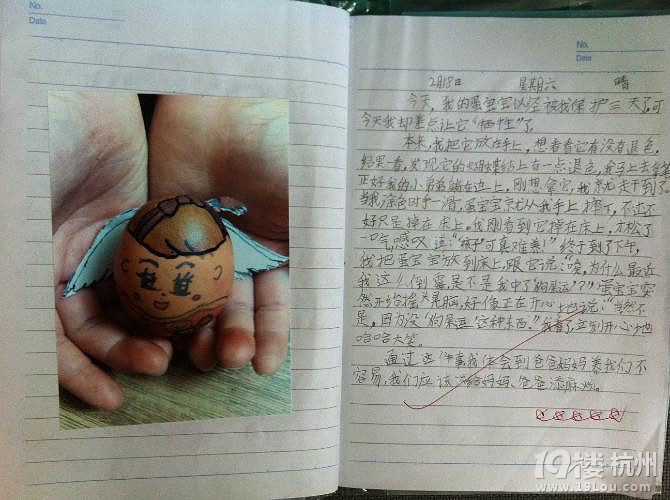 No.
Date
No.
Date
2月18日 星期六 晴
今天，我的蛋宝宝以经被我保护三天了，可
今天我却差点让它“牺牲”了。
本来，我把它放在手上，想看看它有没有退色，
结果一看，发现它的蝴蝶结上有一点退色，我马上去拿笔
正好我的小弟弟躺在边上，刚想拿它，我就走干到了
当我 手一滑，蛋宝宝就从我手上掉下，不过还
好只是掉在床上。我刚看到它掉在床上，不松了
一口气，感叹道：“孩子可真难养！”终于到了下午，
我把蛋宝宝放到床上，跟它说：“唉，为什么最近
我这么倒霉是不是我中了狗屎运？？”蛋宝宝突
然开始摇头晃脑，好像正在开心地说：“当然不
是，因为没‘狗屎运’这种东西。”我看了，立刻开心地
哈哈大笑。
通过这件事我体会到爸爸妈妈养我们不
容易，我们应该 给妈妈、爸爸添麻烦。
19楼 杭州
www.19lou.com